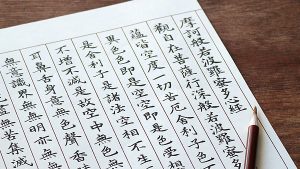 摩訶般若波羅蜜多心經
觀自在菩薩行深般若波羅蜜多
蘊皆空度一切苦厄舍利子色不
異色色即是空空即是色受想
是舍利子是諸法空相不生
不增不減是故空中無色
耳鼻舌身意無色聲香味
無意識界無無明亦無
無苦集滅